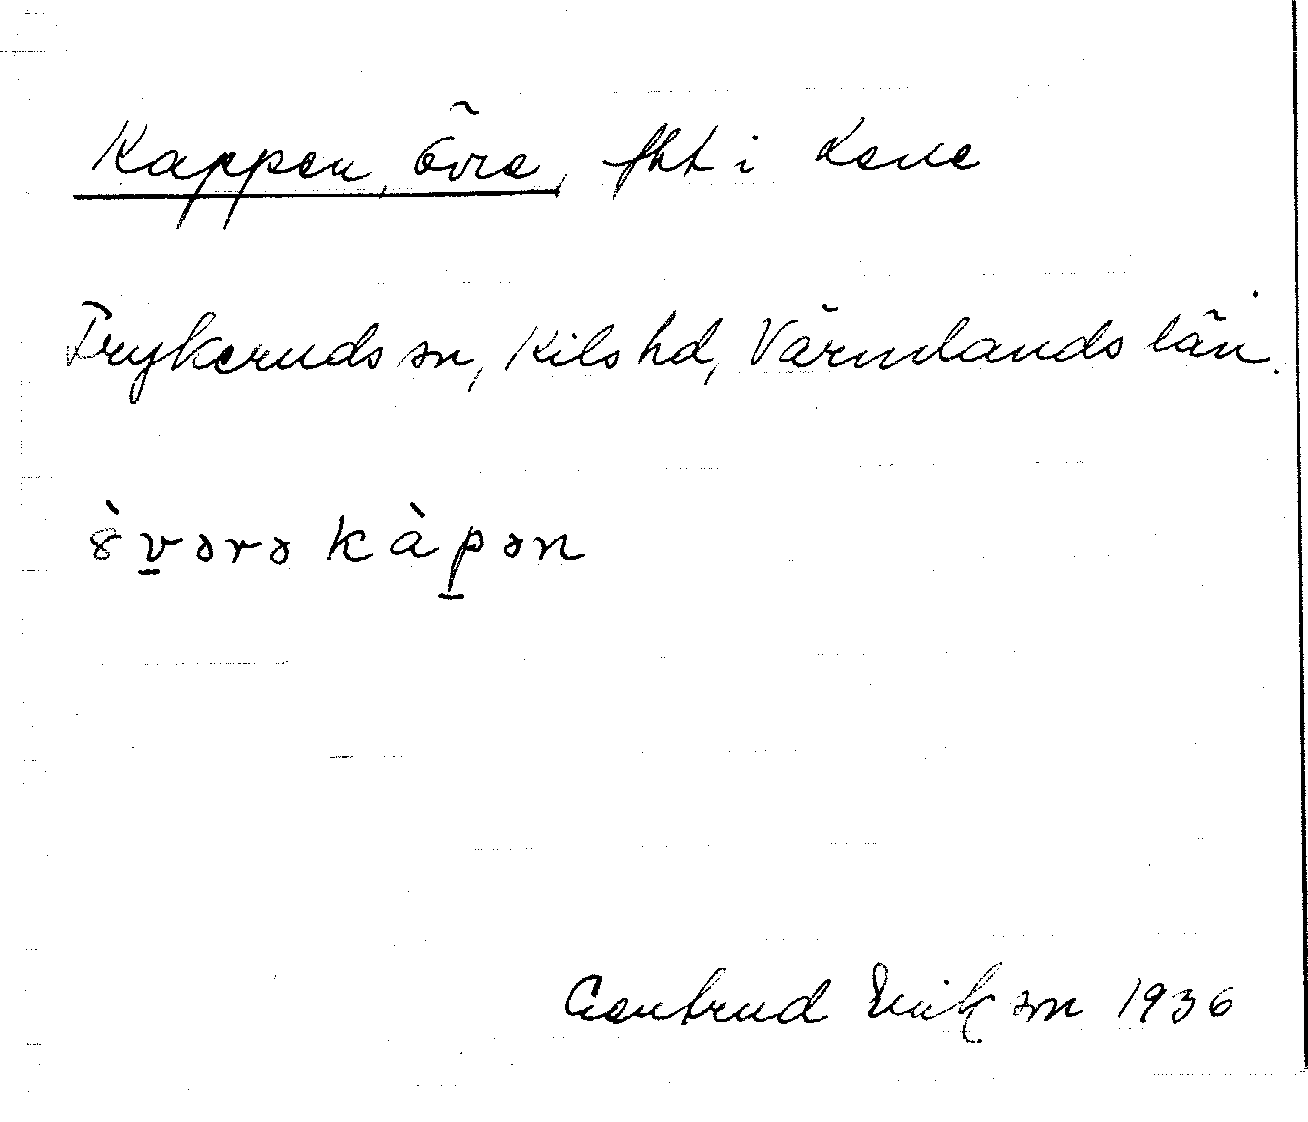 Kappen, övre, fht i Lene
Frykeruds sn, Kils hd, Värmlands län.
ȣ̀v̱ərə kàp̱ən
Gertrud Erikson 1936